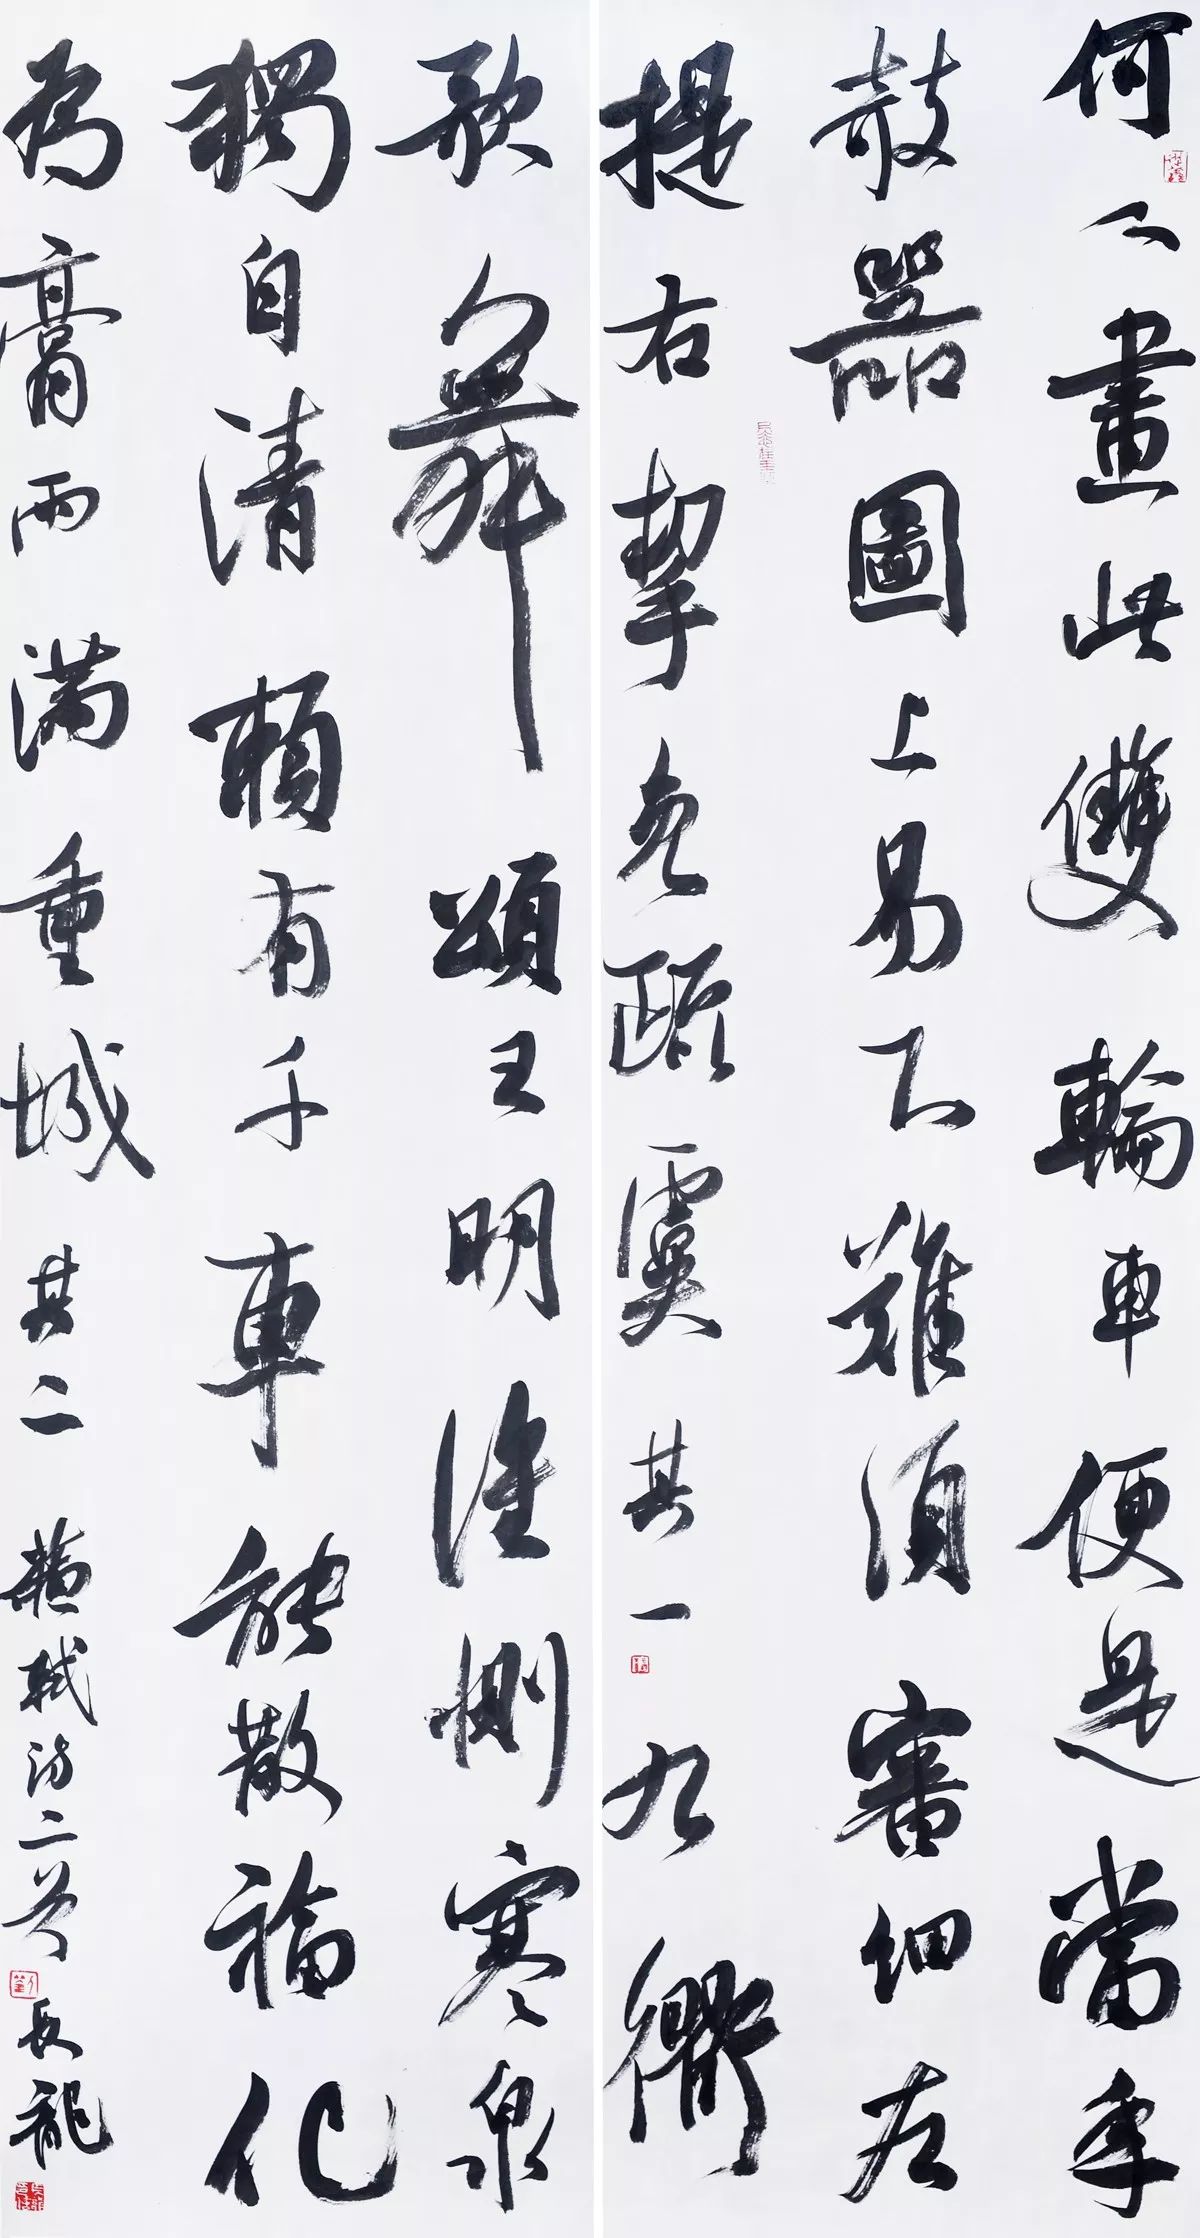 何人畫此雙輪車便是當年
敧器圖上易下難須審細左
提右挈免疏虞 其一 九衢
歌舞頌王明誰惻寒泉
獨自清賴有千車能散福化
為膏雨滿重城 其二 蘇軾詩二首 長龍